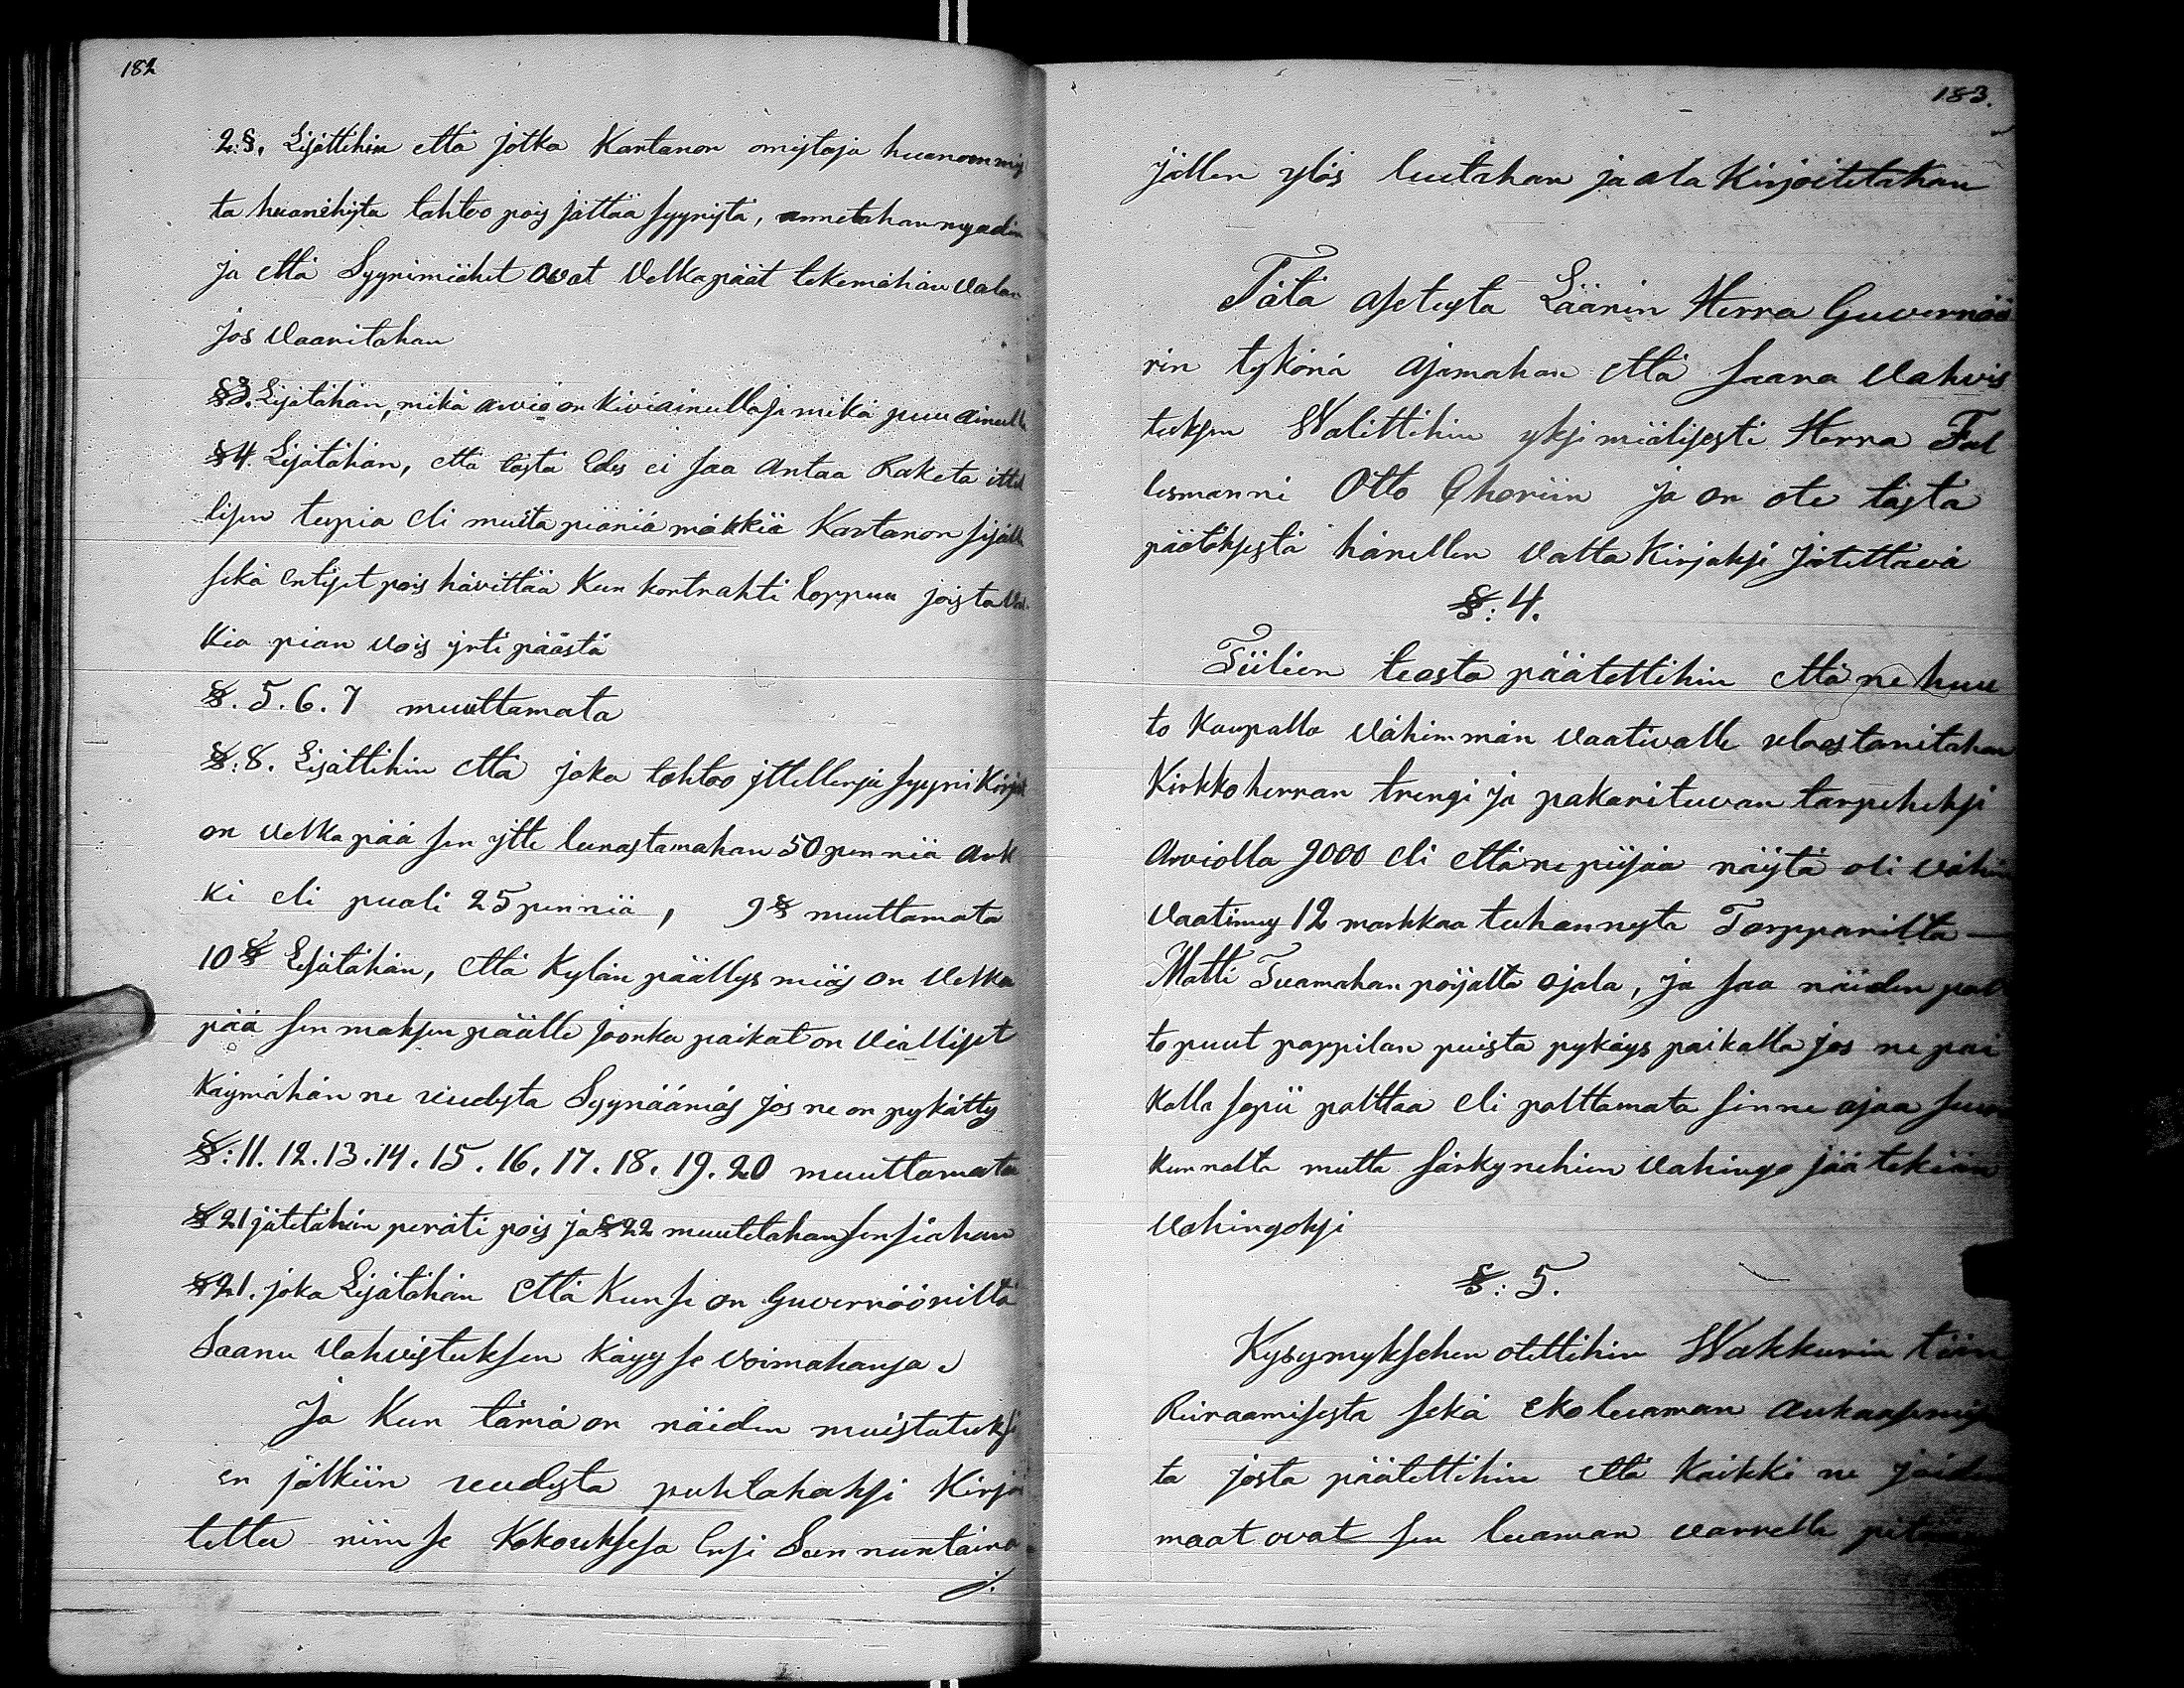 182
2:§. Lisättihin että jotka Kartanon omistaja huanommis
ta huanehista tahtoo pois jättää syynistä, annetahan myädin
ja että Syynimiähet ovat Velkapäät tekemähän valan
jos vaaritahan
§3. Lisätähän, mikä arvio on kiviainulla ja mikä puu ainulla
§4. Lisätähän, että tästä Edes ei saa antaa Raketa ittel
lisen tupia eli muita piäniä mökkiä Kartanon sisälle
sekä entiset pois hävittää kun kortrahti loppuu joista val
kia pian vois yrti päästä
§. 5. 6. 7 muuttamata
§:8. Lisättihin että joka tahtoo ittellensä syyni Kirjat
on velkapää sen itte lunastamahan 50 penniä ark
ki eli puoli 25 penniä, 9§ muuttamata
10§ Lisätähän, että kylän päällys miäs on velka
pää sen maksun päälle joonka paikat on vialliset
käymähän ne uudesta Syynäämäs jos ne on pykätty
§:11. 12. 13. 14. 15. 16. 17. 18. 19. 20 muuttamata
§21 jätetähän peräti pois ja §22 muutetahan sen siahan
§21. joka Lisätähän että kun se on Guvernöörilltä
Saanu vahvistuksen käyy se voimahansa
Ja kun tämä on näiden muistutuksi
en jälkiin uudesta puhtahaksi Kirjoi
tettu niin se Kokouksesa Ensi Sunnuntaina
j.
183.
jällen ylös luetahan ja ala kirjoitetahan
Tätä asetusta Läänin Herra Guvernöö
rin tykönä ajamahan että saara vahvis
tuksen Walittihin yksimiälisesti Herra Fal
lesmanni Otto Choriin ja on ote tästä
päätöksestä hänellen valta kirjaksi jätettävä
§: 4.
Tiilien teosta päätettihin että ne huu
to kaupalla vähimmän vaativalle urastaritahan
Kirkkoherran trengi ja pakarituvan tarpeheksi
Arviolla 9000 eli että ne piisaa näistä oli vähin
vaatimus 12 markkaa tuhannesta Torpparilta —
Matti Tuamahan pojalta ojala, ja saa näiden pol
to puut pappilan puista pykäys paikalla jos ne pai
kalla sopii polttaa eli polttamata sinne ajaa seura
kunnalta mutta särkynehien vahingo jää tekiän
vahingoksi
§: 5.
Kysymyksehen otettihin Wakkurin tiän
Riiraamisesta sekä ekoluaman aukaasemis
ta josta päätettihin että kaikki ne joiden
maat ovat sen luaman varrella pitää